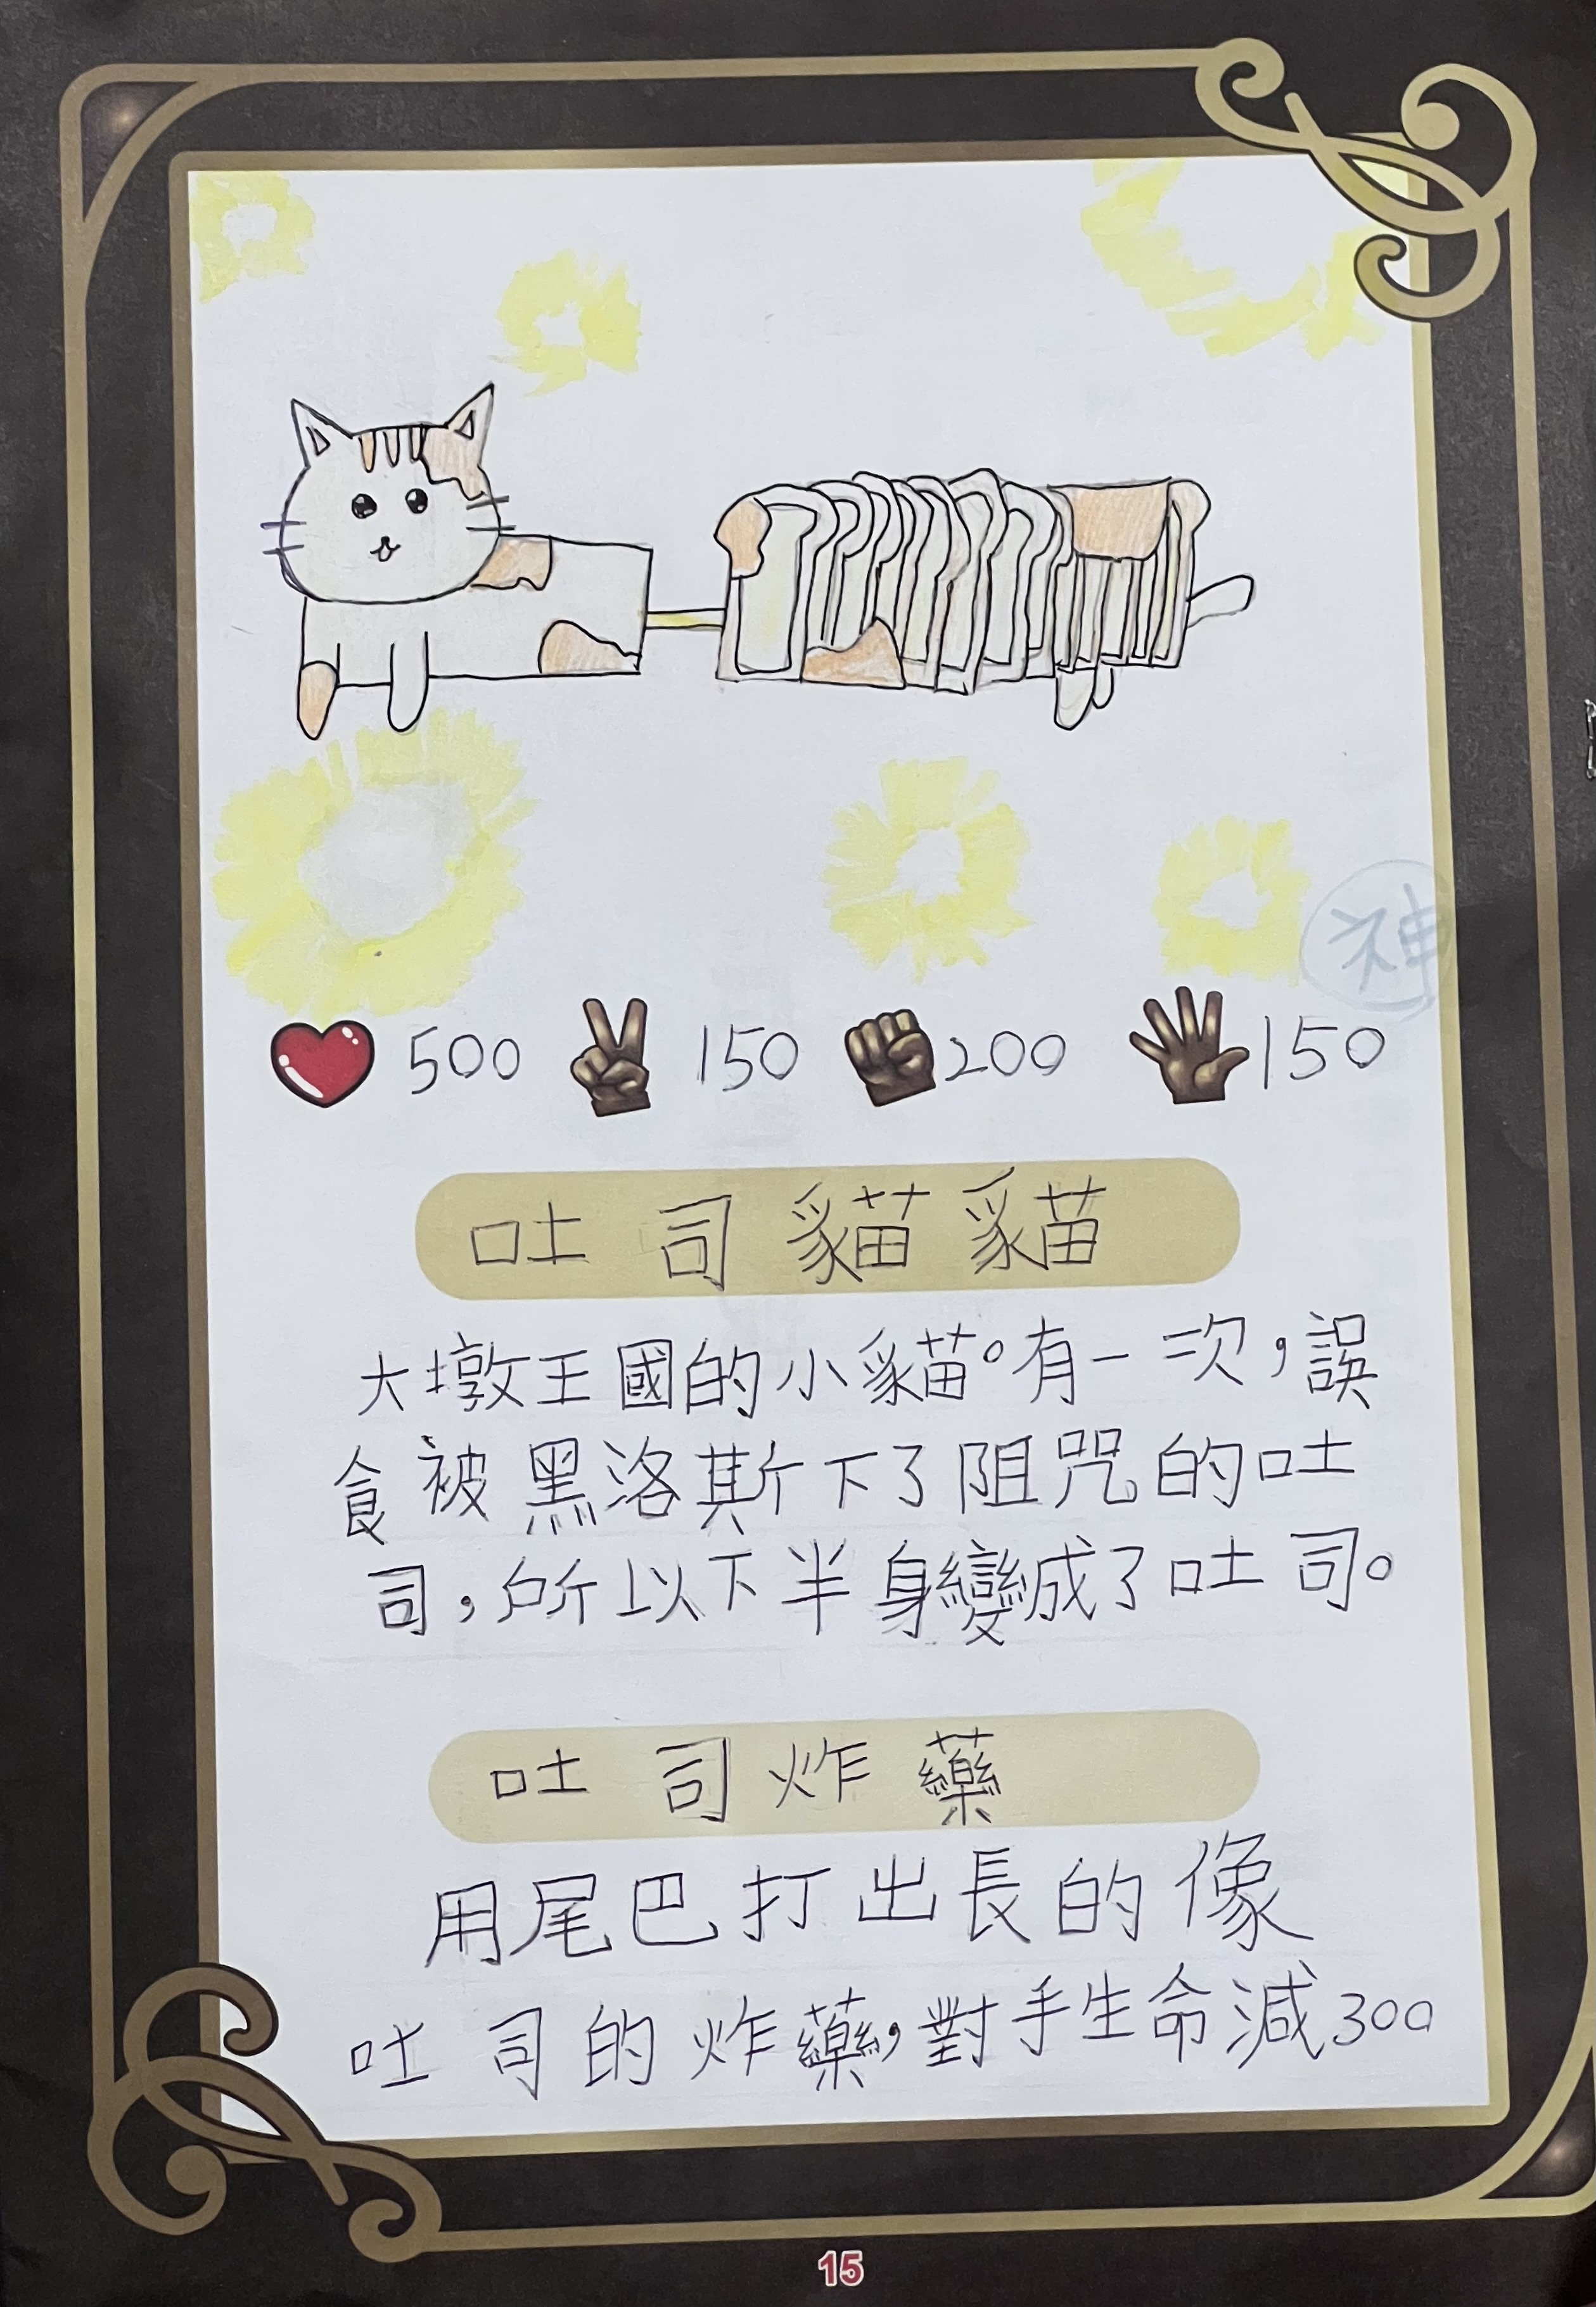 神
500 150 200 150
吐司貓貓
大墩王國的小貓。有一次,誤
食被黑洛斯下了阻咒的吐
司,所以下半身變成了吐司。
吐司炸藥
用尾巴打出長的像
吐司的炸藥,對手生命減300
15